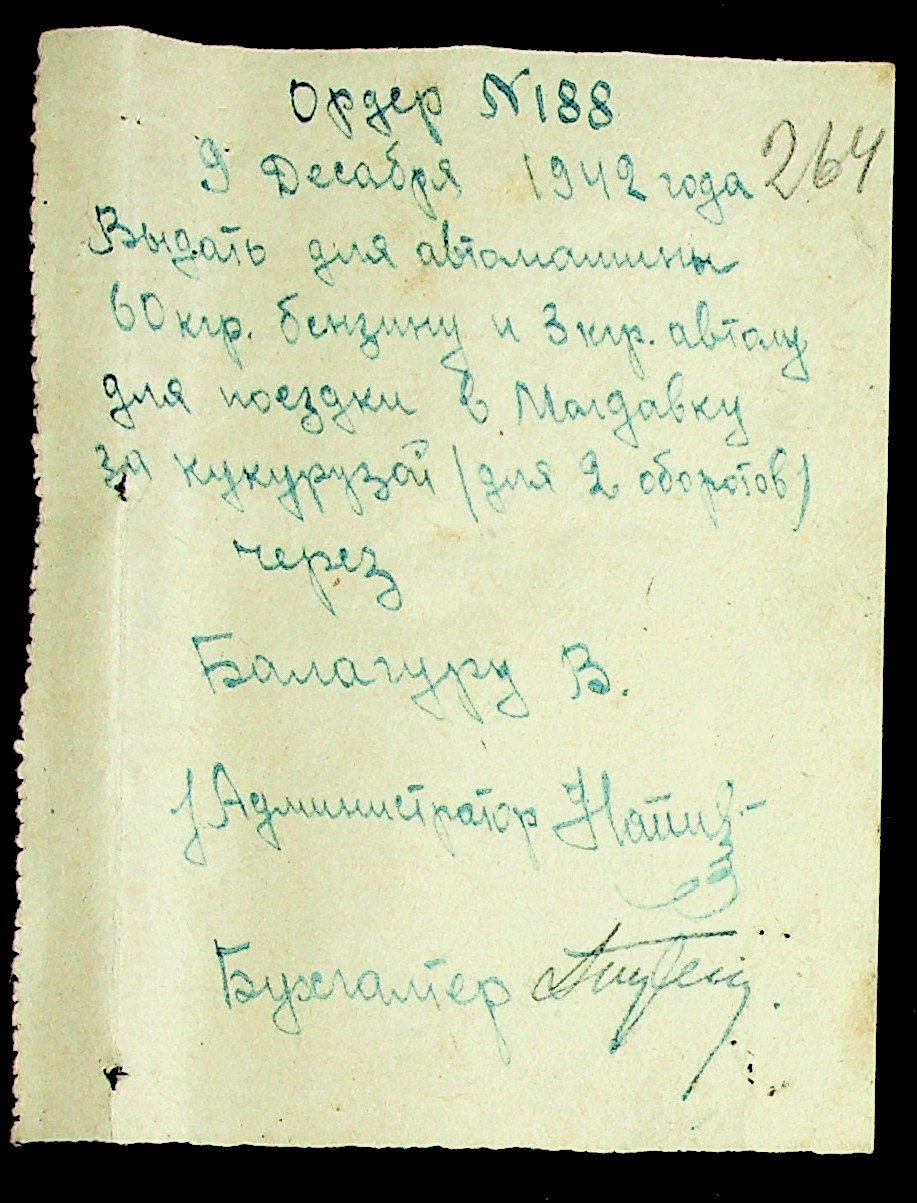 Ордер N 188
264
9 Десабря 1942 года
Выдать для автомашины
60 кгр. бензину и 3 кгр. автолу
для поездки в Молдавку
за кукурузой (для 2 оборотов)
через
Балагуру В.
Администратор
Бухгалтер